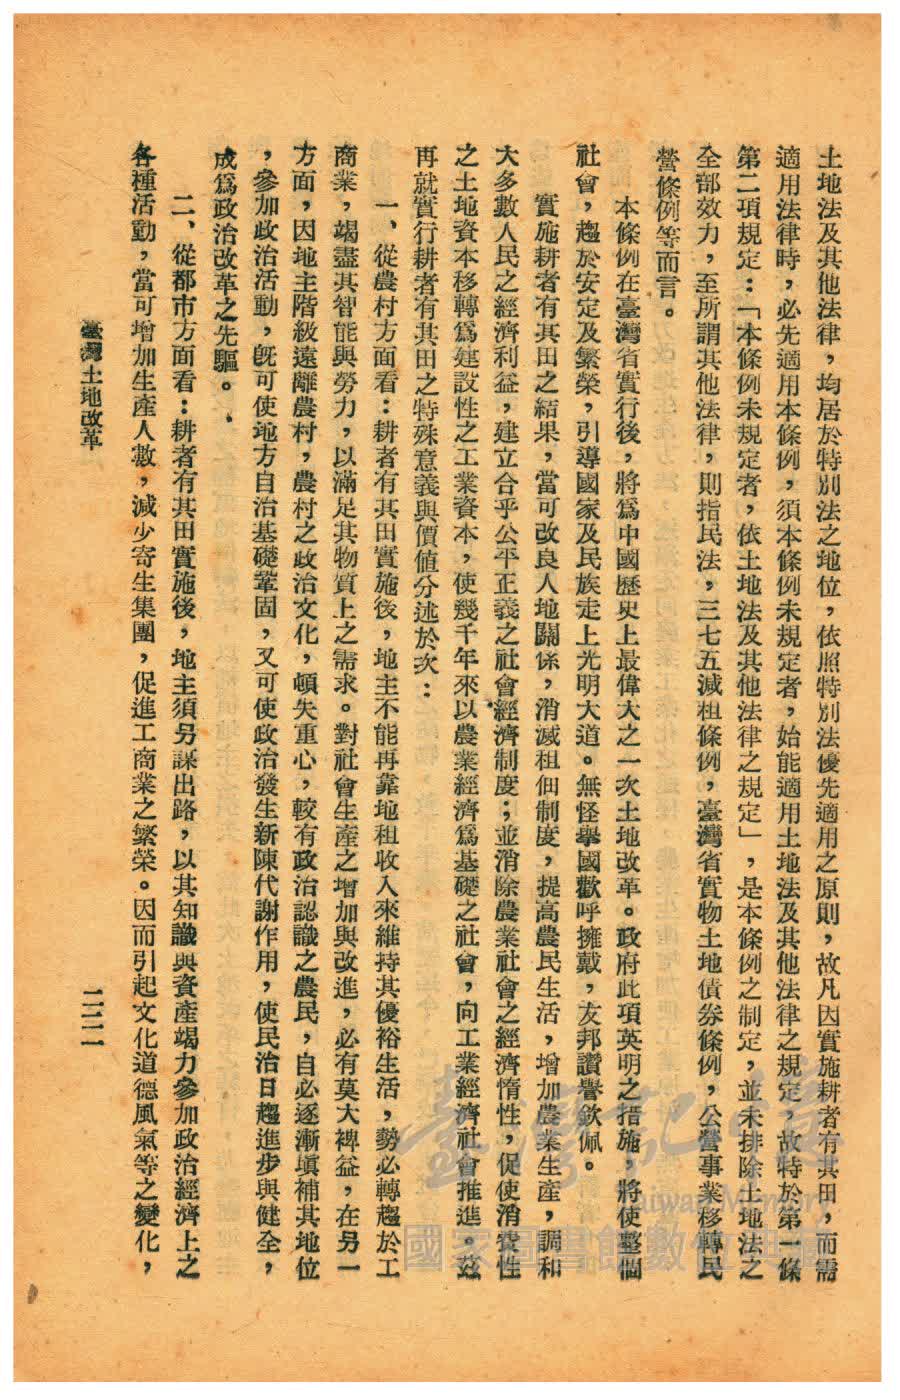 土地法及其他法律，均居於特別法之地位，依照特別法優先適用之原則，故凡因實施耕者有其田，而需
適用法律時，必先適用本條例，須本條例未規定者，始能適用土地法及其他法律之規定，故特於第一條
第二項規定：「本條例未規定者，依土地法及其他法律之規定」，是本條例之制定，並未排除土地法之
全部效力，至所謂其他法律，則指民法，三七五減租條例，臺灣省實物土地債券條例，公營事業移轉民
營條例等而言。
本條例在臺灣省實行後，將爲中國歷史上最偉大之一次土地改革。政府此項英明之措施，將使整個
社會，趨於安定及繁榮，引導國家及民族走上光明大道。無怪舉國歡呼擁戴，友邦讚譽欽佩。
實施耕者有其田之結果，當可改良人地關係，消滅租佃制度，提高農民生活，增加農業生產，調和
大多數人民之經濟利益，建立合乎公平正義之社會經濟制度；並消除農業社會之經濟惰性，促使消費性
之土地資本移轉爲建設性之工業資本，使幾千年來以農業經濟爲基礎之社會，向工業經濟社會推進。茲
再就實行耕者有其田之特殊意義與價值分述於次：
一、從農村方面看：耕者有其田實施後，地主不能再靠地租收入來維持其優裕生活，勢必轉趨於工
商業，竭盡其智能與勞力，以滿足其物質上之需求。對社會生產之增加與改進，必有莫大裨益，在另一
方面，因地主階級遠離農村，農村之政治文化，頓失重心，較有政治認識之農民，自必逐漸塡補其地位
，參加政治活動，旣可使地方自治基礎鞏固，又可使政治發生新陳代謝作用，使民治日趨進步與健全，
成爲政治改革之先驅。
二、從都市方面看：耕者有其田實施後，地主須另謀出路，以其知識與資產竭力參加政治經濟上之
各種活動，當可增加生產人數，減少寄生集團，促進工商業之繁榮。因而引起文化道德風氣等之變化，
臺灣土地改革
二二二
臺灣記憶
Taiwan Memory
國家圖書館數位典藏